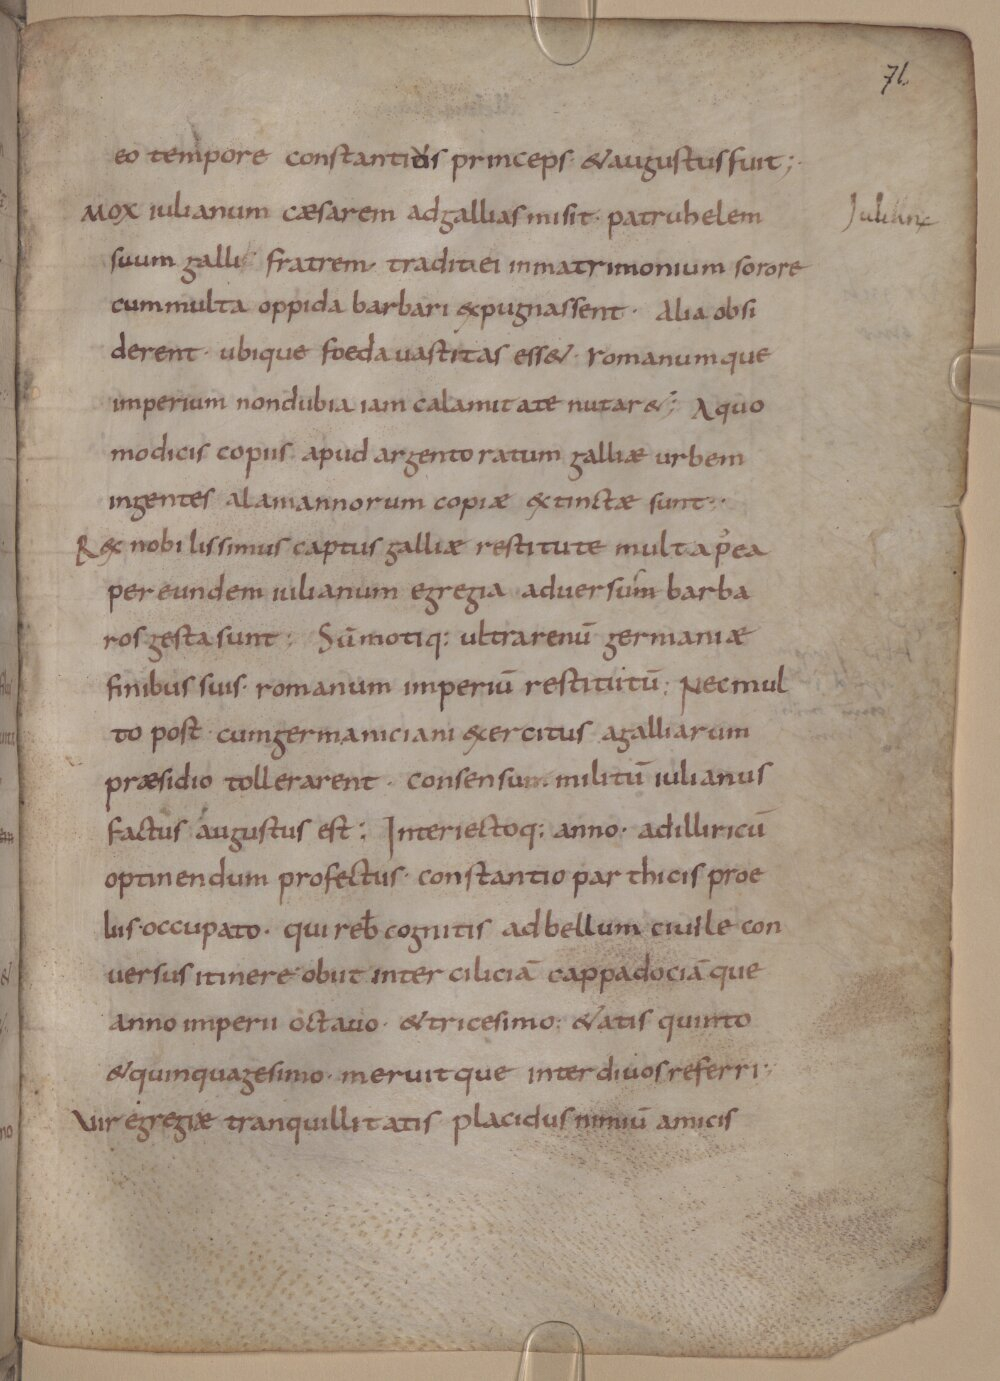 71
eo tempore constantius princeps · &augustus fuit ;·
Mox iulianum cæsarem adgallias misit · patruhelem
Julianus
suum galli fratrem · traditaei inmatrimonium sorore
cummulta oppida barbari expugnassent · Alia obsi
derent · ubique foeda uastitas ess& · romanumque
imperium nondubia iam calamitate nutar& ; Aquo
modicis copiis apud argentoratum galliæ urbem
ingentes alamannorum copiæ extinctæ sunt ·
Rex nobilissimus captus galliæ restitute multa p̾ea
per eundem iulianum egregia aduersum barba
ros gesta sunt : Sūmotiq: ultrarenū germaniæ
finibus suis · romanum imperiū restitutū ; Nec mul
to post cumgermaniciani exercitus agalliarum
præsidio tollerarent · consensum militū iulianus
factus augustus est : Interiectoq; anno · adilliricū
optinendum profectus · constantio parthicis proe
liis · occupato · qui reƀ cognitis adbellum ciuile con
uersus itinere obiit inter ciliciā cappadociāque
anno imperii octauo · &tricesimo : &atis quinto
&quinquagesimo · meruitque inter diuos referri ;
Vir egregiæ tranquillitatis placidus nimiū amicis